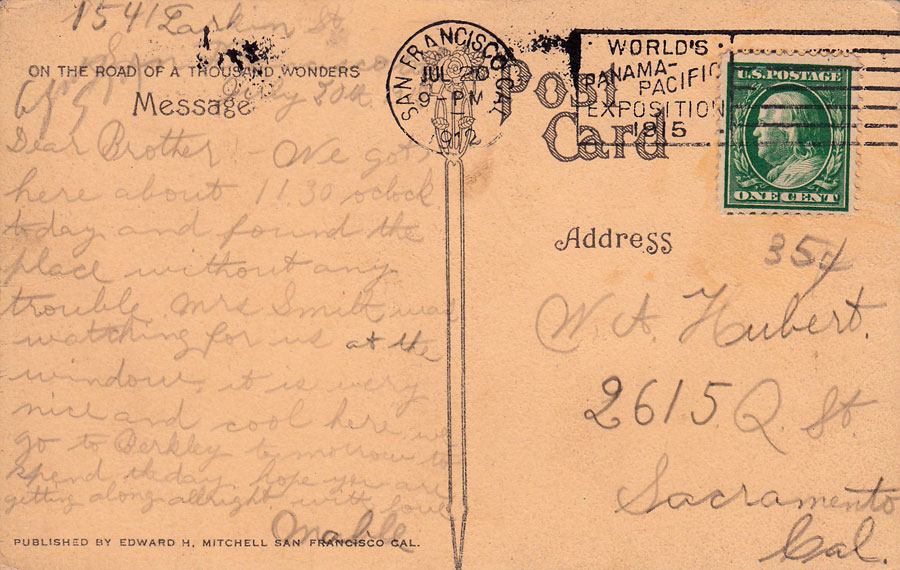 1541 Larkin St
San Francisco
ON THE ROAD OF A THOUSAND WONDERS
July 20th
Message
Dear Brother - We got
here about 11 30 oclock
today and found the
place without any
trouble Mrs Smith was
watching for us at the
window, it is very
nice and cool here we
go to Berkley to morrow to
spend the day. hope yer are
getting along allright with love
Mable
PUBLISHED BY EDWARD H. MITCHELL SAN FRANCISCO CAL.
SAN FRANCISCO, CAL.
JUL 20
9 - PM
1912
WORLD'S
PANAMA-
PACIFIC
EXPOSITION
1915
U.S. POSTAGE
ONE CENT
Post
Card
Address
35¢
W. A. Hubert.
2615 Q. St.
Sacramento
Cal.